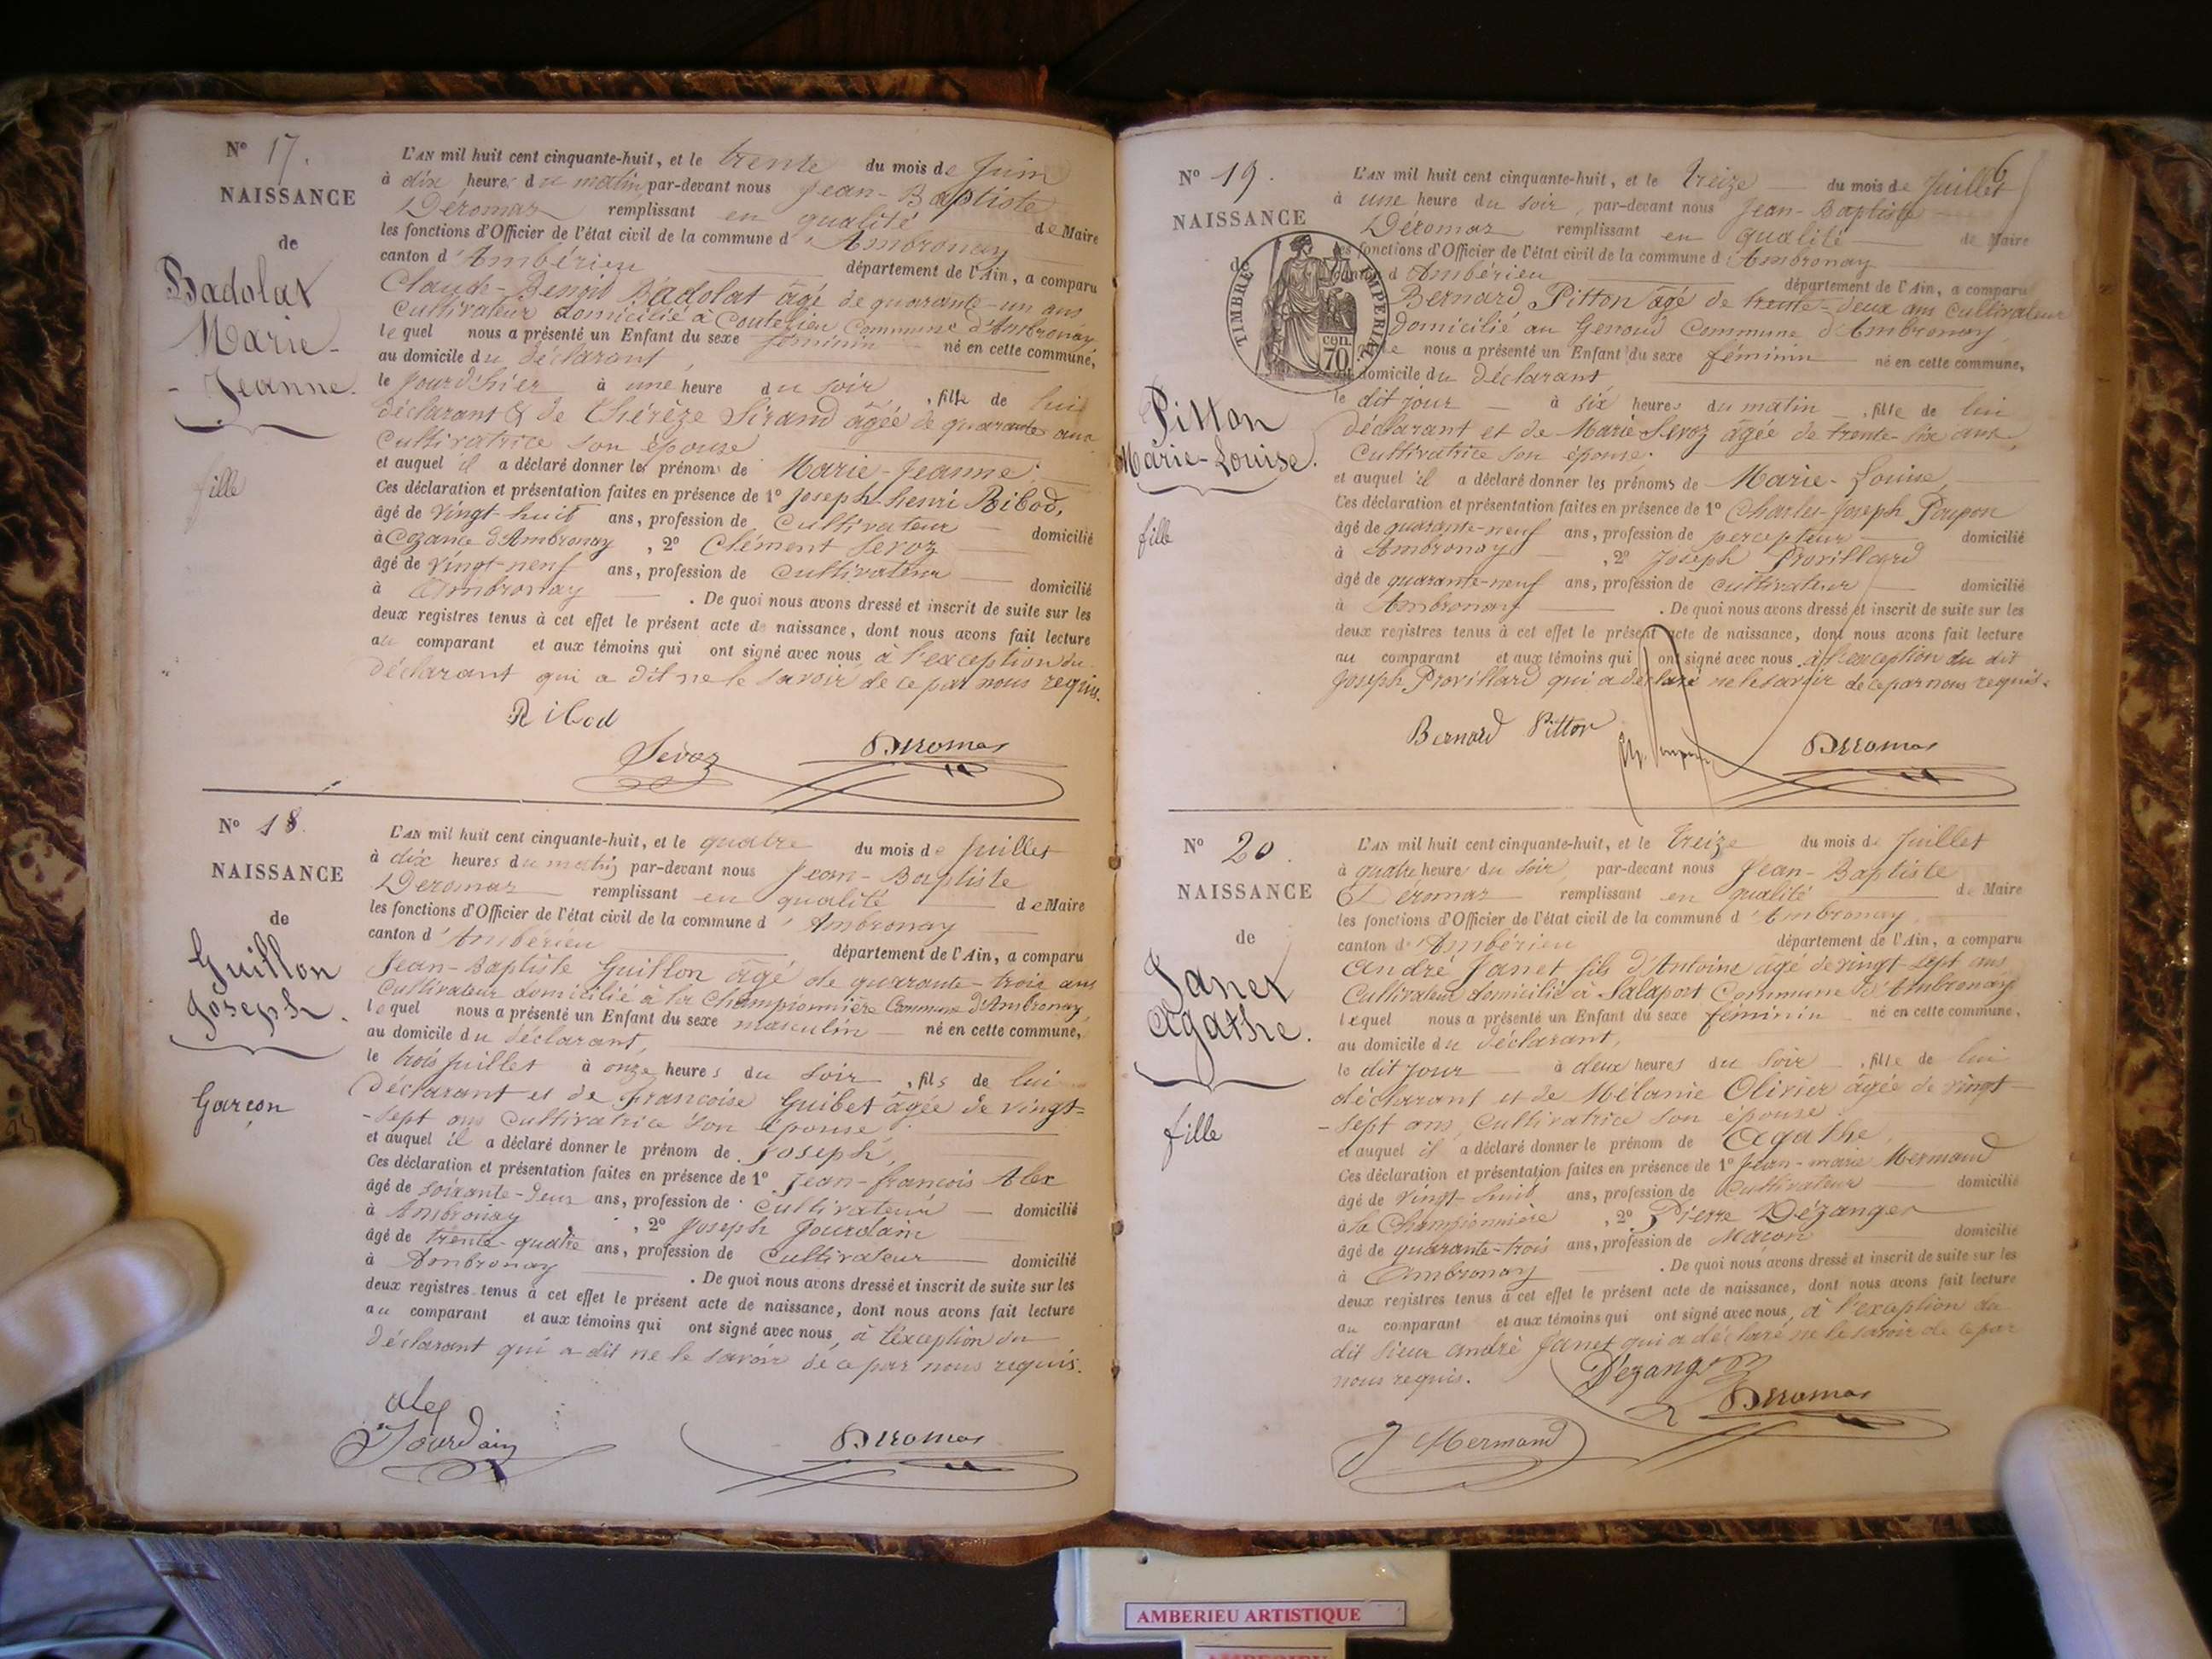 N° 17.
NAISSANCE
de
Badolat
Marie-
Jeanne.
fille
L'AN mil huit cent cinquante-huit, et le trente du mois de Juin
à dix heures du matin par-devant nous Jean-Baptiste
Déromas remplissant en qualité de Maire
les fonctions d'Officier de l'état civil de la commune d'Ambronay
canton d'Ambérieu département de l'Ain, a comparu
Claude-Benoid Badolat âgé de quarante-un ans
Cultivateur domicilié à Coutelieu Commune d'Ambronay
lequel nous a présenté un Enfant du sexe féminin né en cette commune,
au domicile du déclarant,
le jourd'hier à une heure du soir, fille de lui
déclarant & de Thérèze Sirand âgée de quarante ans
Cultivatrice son épouse
et auquel il a déclaré donner les prénoms de Marie-Jeanne.
Ces déclaration et présentation faites en présence de 1° Joseph-henri Ribod,
âgé de vingt-huit ans, profession de Cultivateur domicilié
à Cozance d'Ambronay, 2° Clément Sevoz
âgé de vingt-neuf ans, profession de Cultivateur domicilié
à Ambronay. De quoi nous avons dressé et inscrit de suite sur les
deux registres tenus à cet effet le présent acte de naissance, dont nous avons fait lecture
au comparant et aux témoins qui ont signé avec nous à l'exception du
déclarant qui a dit ne le savoir de ce par nous requis.
Ribod
Sevoz Deromas
N° 18.
NAISSANCE
de
Guillon
Joseph.
Garçon
L'AN mil huit cent cinquante-huit, et le quatre du mois de Juillet
à dix heures du matin, par-devant nous Jean-Baptiste
Deromas remplissant en qualité de Maire
les fonctions d'Officier de l'état civil de la commune d'Ambronay
canton d'Ambérieu département de l'Ain, a comparu
Jean-Baptiste Guillon âgé de quarante-trois ans
Cultivateur domicilié à la Championnière Commune d'Ambronay,
lequel nous a présenté un Enfant du sexe masculin né en cette commune,
au domicile du déclarant,
le trois juillet à onze heures du soir, fils de lui
Déclarant et de françoise Guibet âgée de vingt-
-sept ans Cultivatrice son épouse
et auquel il a déclaré donner le prénom de Joseph,
Ces déclaration et présentation faites en présence de 1° Jean-françois Alex
âgé de soixante-deux ans, profession de Cultivateur domicilié
à Ambronay, 2° Joseph Jourdain
âgé de trente-quatre ans, profession de Cultivateur domicilié
à Ambronay. De quoi nous avons dressé et inscrit de suite sur les
deux registres tenus à cet effet le présent acte de naissance, dont nous avons fait lecture
au comparant et aux témoins qui ont signé avec nous, à l'exception du
Déclarant qui a dit ne le savoir de ce par nous requis.
Alex
Jourdain Deromas
6
N° 19.
NAISSANCE
de
TIMBRE IMPÉRIAL
cen. 70
Pitton
Marie-Louise.
fille
L'AN mil huit cent cinquante-huit, et le treize du mois de Juillet
à une heure du soir, par-devant nous Jean-Baptiste
Déromas remplissant en qualité de Maire
les fonctions d'Officier de l'état civil de la commune d'Ambronay
canton d'Ambérieu département de l'Ain, a comparu
Bernard Pitton âgé de trente-deux ans Cultivateur
Domicilié au Genoud Commune d'Ambronay,
nous a présenté un Enfant du sexe féminin né en cette commune,
domicile du déclarant
le dit jour à six heures du matin, fille de lui
déclarant et de Marie Sevoz âgée de trente-six ans,
Cultivatrice son épouse.
et auquel il a déclaré donner les prénoms de Marie-Louise,
Ces déclaration et présentation faites en présence de 1° Charles-Joseph Poupon
âgé de quarante-neuf ans, profession de percepteur domicilié
à Ambronay, 2° Joseph Provillard
âgé de quarante-neuf ans, profession de cultivateur domicilié
à Ambronay. De quoi nous avons dressé et inscrit de suite sur les
deux registres tenus à cet effet le présent acte de naissance, dont nous avons fait lecture
au comparant et aux témoins qui ont signé avec nous à l'exception du dit
Joseph Provillard qui a déclaré ne le savoir de ce par nous requis.
Bernard Pitton Deromas
N° 20.
NAISSANCE
de
Janet
Agathe.
fille
L'AN mil huit cent cinquante-huit, et le treize du mois de Juillet
à quatre heures du soir, par-devant nous Jean-Baptiste
Deromas remplissant en qualité de Maire
les fonctions d'Officier de l'état civil de la commune d'Ambronay
canton d'Ambérieu département de l'Ain, a comparu
André Janet fils d'Antoine âgé de vingt-sept ans
Cultivateur domicilié à Salaport Commune d'Ambronay
lequel nous a présenté un Enfant du sexe féminin né en cette commune,
au domicile du déclarant,
le dit jour à deux heures du soir, fille de lui
déclarant et de Mélanie Olivier âgée de vingt
-sept ans, Cultivatrice son épouse
et auquel il a déclaré donner le prénom de Agathe,
Ces déclaration et présentation faites en présence de 1° Jean-marie Mermand
âgé de vingt-huit ans, profession de Cultivateur domicilié
à la Championnière, 2° Pierre Dézanger
âgé de quarante-trois ans, profession de Maçon domicilié
à Ambronay. De quoi nous avons dressé et inscrit de suite sur les
deux registres tenus à cet effet le présent acte de naissance, dont nous avons fait lecture
au comparant et aux témoins qui ont signé avec nous, à l'exception du
dit sieur andré Janet qui a déclaré ne le savoir de ce par
nous requis. Dezanger
Deromas
J Mermand
AMBERIEU ARTISTIQUE
AMBERIEU